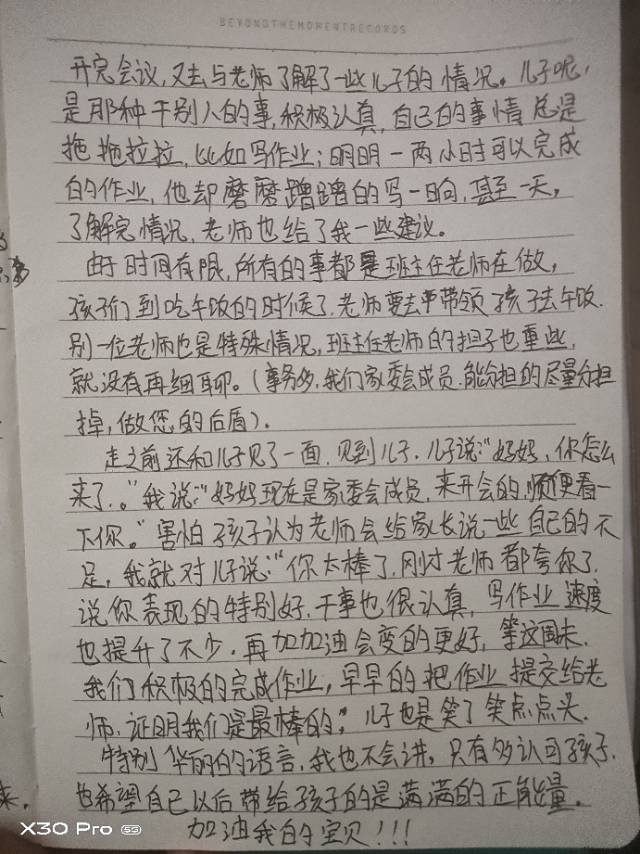 BEYONDTHEMOMENTRECORDS
开完会议,又去与老师了解了一些儿子的情况。儿子呢,
是那种干别人的事,积极认真,自己的事情总是
拖拖拉拉,比如写作业;明明一两小时可以完成
的作业,他却磨磨蹭蹭的写一日向,甚至一天,
了解完情况,老师也给了我一些建议。
由于时间有限,所有的事都是班主任老师在做,
孩子们到吃午饭的时候了,老师要去带领孩子去午饭.
别一位老师也是特殊情况,班主任老师的担子也重些,
就没有再细聊。(事务多,我们家委会成员.能分担的尽量分担
掉,做您的后盾)。
走之前还和儿子见了一面,见到儿子.儿子说:"妈妈,你怎么
来了。"我说:"妈妈现在是家委会成员,来开会的,顺便看一
下你。"害怕孩子认为老师会给家长说一些自己的不
足,我就对儿子说:"你太棒了,刚才老师都夸你了.
说你表现的特别好,干事也很认真,写作业速度
也提升了不少.再加加油会变的更好,等这周末.
我们积极的完成作业,早早的把作业提交给老
师.证明我们是最棒的;"儿子也是笑了笑点点头.
特别华丽的语言,我也不会讲,只有多认可孩子.
也希望自己以后带给孩子的是满满的正能量。
加油我的宝贝!!!
来.
X30 Pro 5G